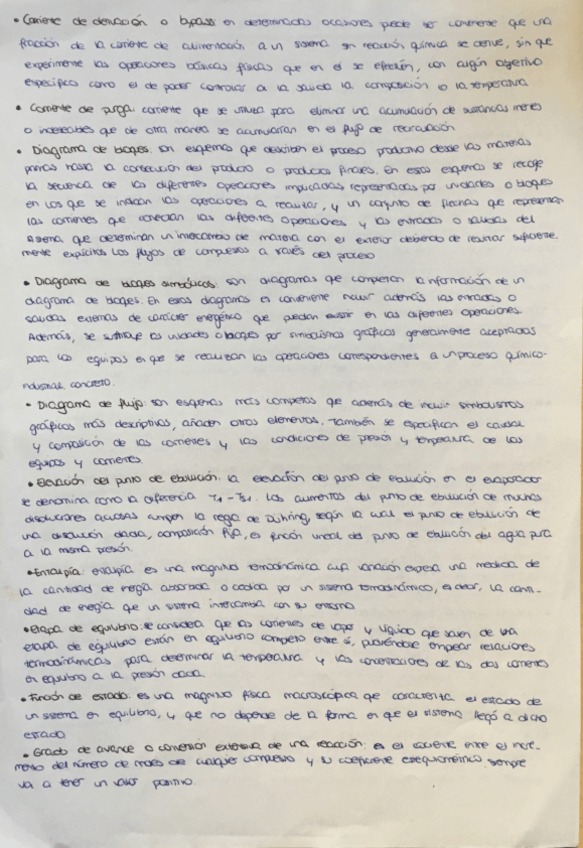 • Corriente de derivación o bypass en determinadas ocasiones puede ser conveniente que una
fracción de la corriente de alimentación a un sistema sin reacción química se derive, sin que
experimente las operaciones básicas físicas que en el se efectúen, con algún objetivo
específico como el de poder controlar a la salida la composición o la temperatura
• Corriente de purga: corriente que se utiliza para eliminar una acumulación de sustancias inertes
o indeseables que de otra manera se acumularían en el flujo de recirculación
• Diagrama de bloques: son esquemas que describen el proceso productivo desde las materias
primas hasta la consecución del producto o productos finales. En estos esquemas se recoge
la secuencia de las diferentes operaciones implicadas representadas por unidades o bloques
en los que se indican las operaciones a realizar, y un conjunto de flechas que representan
las corrientes que conectan las diferentes operaciones y las entradas o salidas del
sistema que determinan un intercambio de materia con el exterior debiendo de resultar suficiente-
mente explícitos los flujos de compuestos a través del proceso
• Diagrama de bloques simbólicos: son diagramas que completan la información de un
diagrama de bloques. En estos diagramas es conveniente incluir además las entradas o
salidas externas de carácter energético que puedan existir en las diferentes operaciones.
Además, se sustituye las unidades o bloques por simbolismos gráficos generalmente aceptados
para los equipos en que se realizan las operaciones correspondientes a un proceso químico-
industrial concreto.
• Diagrama de flujo: son esquemas más completos que además de incluir simbolismos
gráficos más descriptivos, añaden otros elementos. También se especifican el caudal
y composición de las corrientes y las condiciones de presión y temperatura de los
equipos y corrientes.
• Elevación del punto de ebullición: la elevación del punto de ebullición en el evaporador
se denomina como la diferencia T1 - Ts1. Los aumentos del punto de ebullición de muchas
disoluciones acuosas cumplen la regla de Dühring, según la cual el punto de ebullición de
una disolución dada, composición fija, es función lineal del punto de ebullición del agua pura
a la misma presión.
• Entalpía: entalpía es una magnitud termodinámica cuya variación expresa una medida de
la cantidad de energía absorbida o cedida por un sistema termodinámico, es decir, la canti-
dad de energía que un sistema intercambia con su entorno
• Etapa de equilibrio: se considera que las corrientes de vapor y líquido que salen de una
etapa de equilibrio están en equilibrio completo entre sí, pudiéndose emplear relaciones
termodinámicas para determinar la temperatura y las concentraciones de las dos corrientes
en equilibrio a la presión dada.
• Función de estado: es una magnitud física macroscópica que caracteriza el estado de
un sistema en equilibrio, y que no depende de la forma en que el sistema llegó a dicho
estado
• Grado de avance o conversión extensiva de una reacción: es el cociente entre el incre-
mento del número de moles de cualquier compuesto y su coeficiente estequiométrico. Siempre
va a tener un valor positivo.